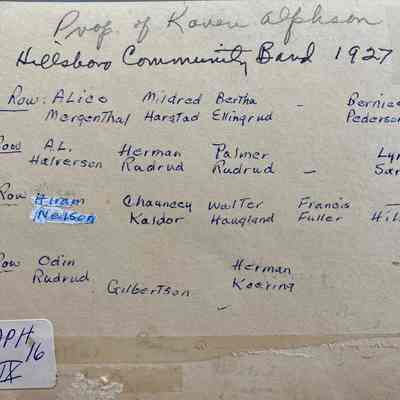 Prop. of Karen Alphson
Hillsboro Community Band 1927
Row: Alice Mildred Bertha - Bernice
Mergenthal Harstad Ellingrud Pederson
Row A.L. Herman Palmer Lyn
Halverson Rudrud Rudrud - Sar
Row Hiram Chauncey Walter Francis -
Nelson Kaldor Haugland Fuller Hil
Row Odin Herman
Rudrud Gilbertson Koering
APH 16
IX